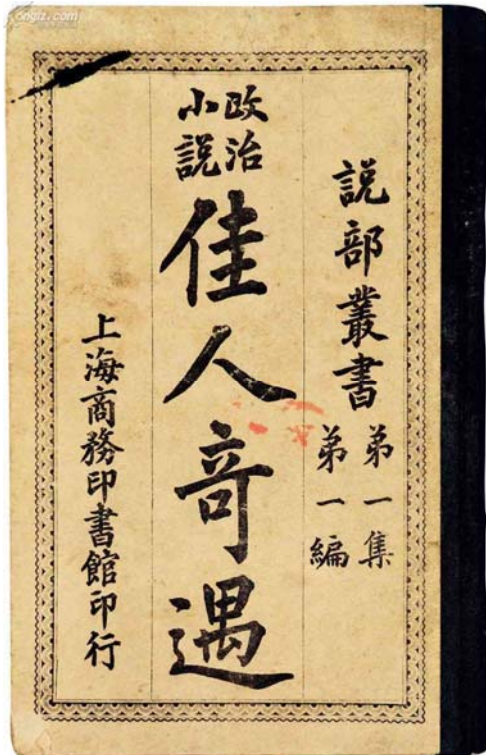 說部叢書
第一集
第一編
政治
小說
佳人奇遇
上海商務印書館印行